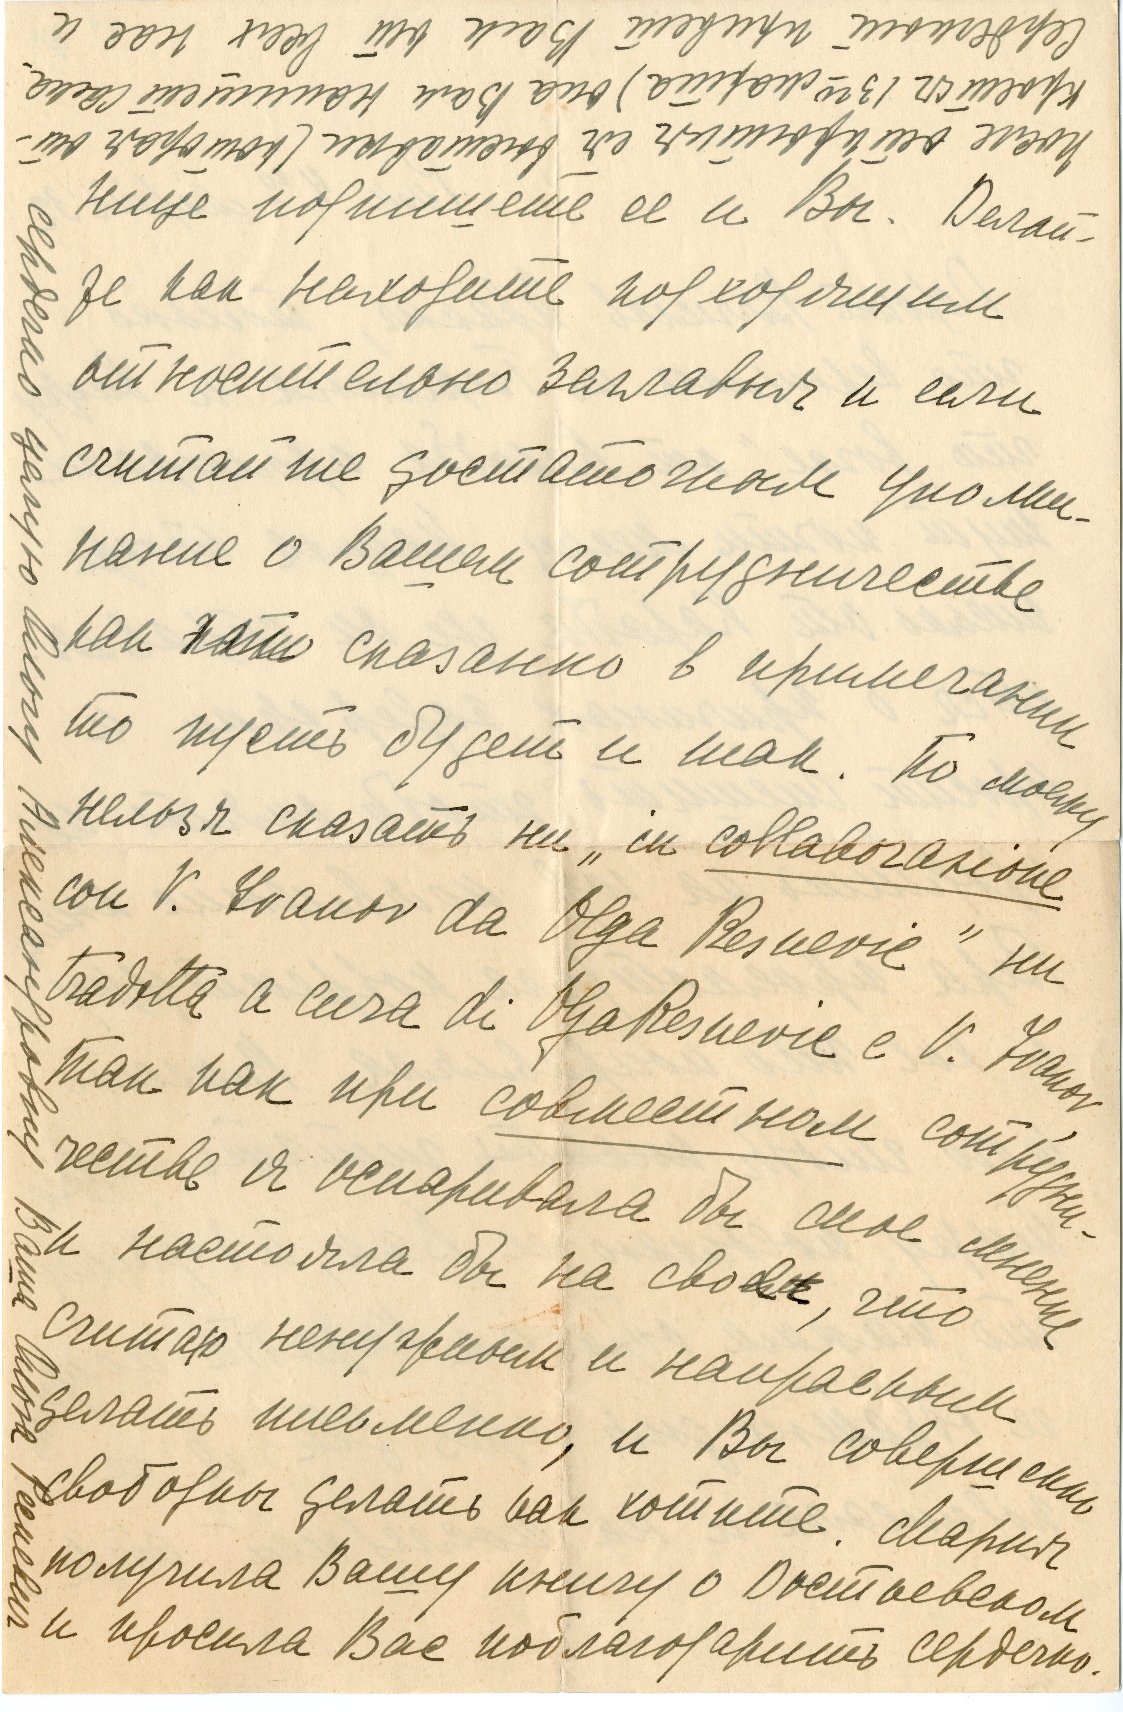 нице подпишете ее и Вы. Делай-
те как находите подходящим
относительно заглавья и если
считайте достаточным упоми-
нание о Вашем сотрудничестве
как сказанно в примечании
то пусть будет и так. По моему
нельзя сказать ни „in collaborazione
con V. Ivanov da Olga Resnevic" ни
tradotta a cura di Olga Resnevic e V. Ivanov,
так как при совместном сотрудни-
честве я оспаривала бы мое мнение
и настояла бы на своем, что
считаю ненужным и напрасным
делать письменно, и Вы совершенно
свободны делать как хотите. Мария
получила Вашу книгу о Достоевском
и просила Вас поблагодарить сердечно.
После открытия ея выставки (которая от-
кроется 13го марта) она Вам напишет сама.
Сердечный привет Вам от всех нас и
сердечно целую Ольгу Александровну Ваша Ольга Ресневич